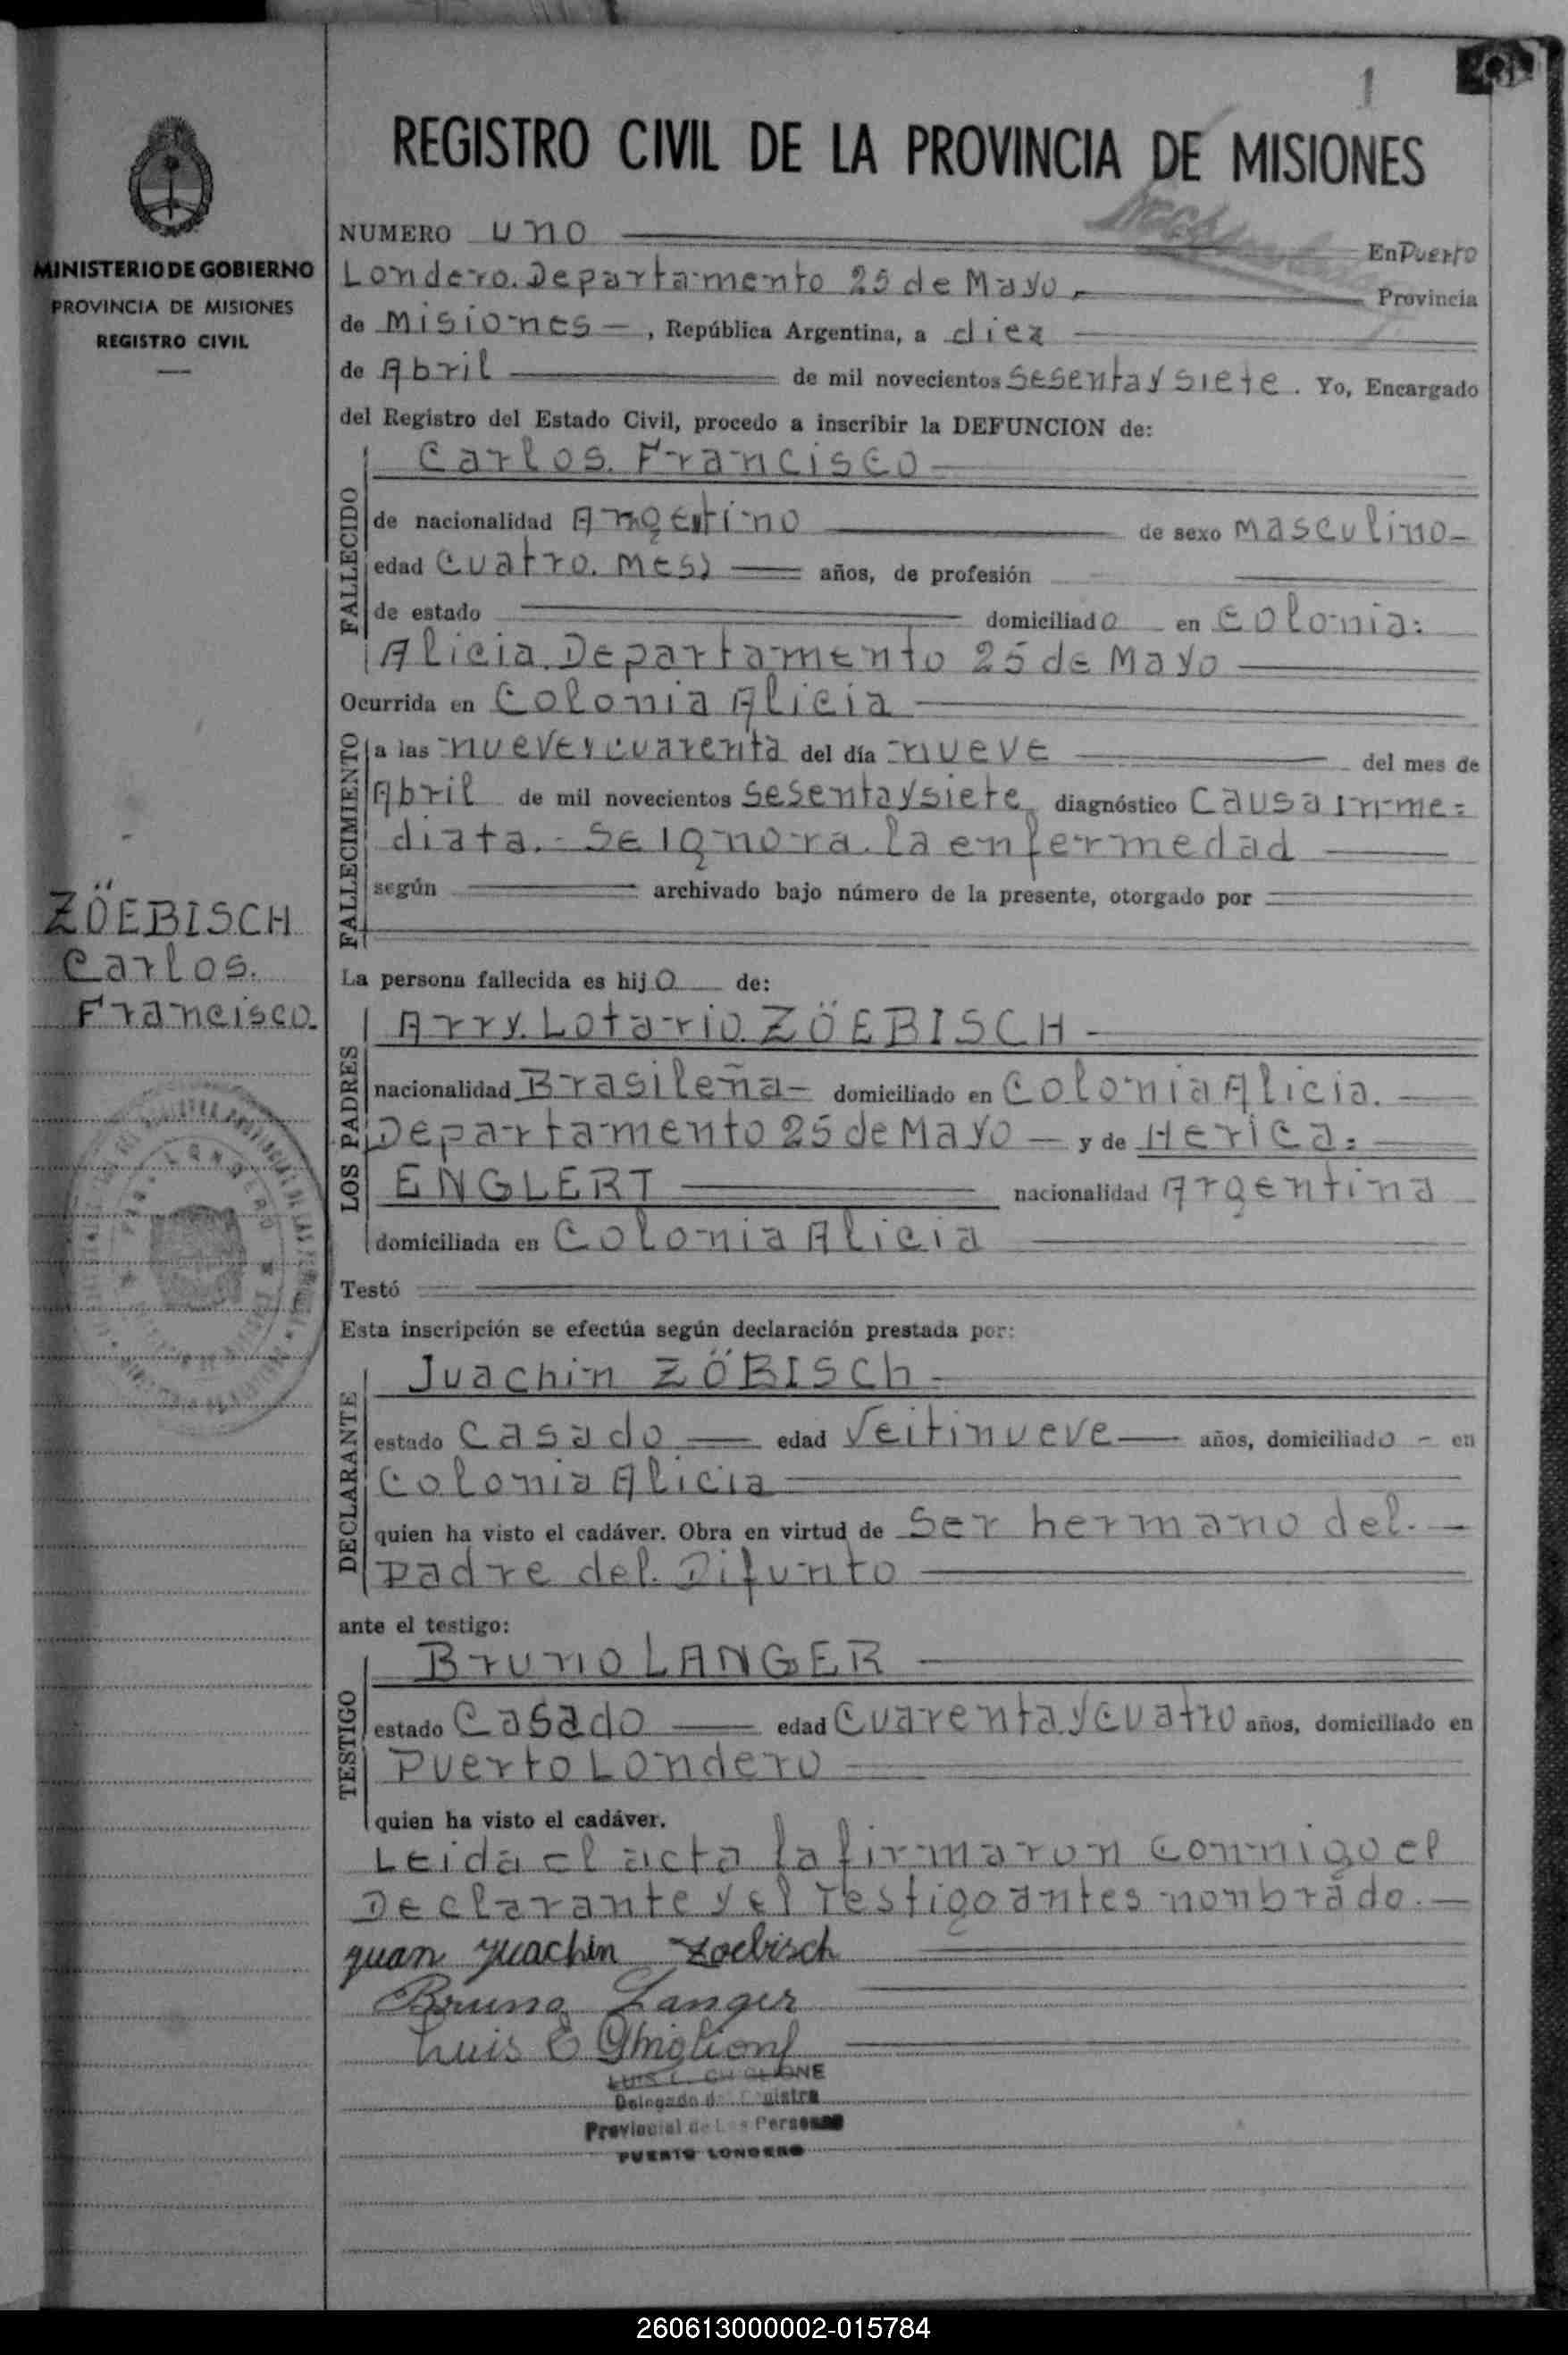 1
REGISTRO CIVIL DE LA PROVINCIA DE MISIONES
MINISTERIO DE GOBIERNO
PROVINCIA DE MISIONES
REGISTRO CIVIL
NUMERO uno En Puerto
Londero. Departamento 25 de Mayo.- Provincia
de Misiones -, República Argentina, a diez
de Abril de mil novecientos sesenta y siete. Yo, Encargado
del Registro del Estado Civil, procedo a inscribir la DEFUNCION de:
Carlos. Francisco
FALLECIDO
de nacionalidad Argentino de sexo masculino-
edad cuatro. mess años, de profesión
de estado domiciliado en Colonia:
Alicia. Departamento 25 de Mayo
Ocurrida en Colonia Alicia
FALLECIMIENTO
a las nueve y cuarenta del día nueve del mes de
Abril de mil novecientos sesenta y siete diagnóstico causa inme=
diata.- Se ignora. la enfermedad
según archivado bajo número de la presente, otorgado por
ZÖEBISCH
Carlos.
Francisco.
La persona fallecida es hijo de:
Arry. Lotario. ZÖEBISCH -
LOS PADRES
nacionalidad Brasileña- domiciliado en Colonia Alicia.
Departamento 25 de Mayo - y de Herica=
ENGLERT nacionalidad Argentina
domiciliada en Colonia Alicia
Testó
Esta inscripción se efectúa según declaración prestada por:
Juachin ZÖBISCh -
DECLARANTE
estado casado edad Veitinueve años, domiciliado - en
Colonia Alicia
quien ha visto el cadáver. Obra en virtud de Ser hermano del.-
padre del. Difunto
ante el testigo:
Bruno LANGER
TESTIGO
estado casado edad cuarenta y cuatro años, domiciliado en
Puerto Londero
quien ha visto el cadáver.
Leida el acta la firmaron conmigo el
Declarante y el Testigo antes nonbrado.-
Juan Juachin Zoebisch
Bruno Langer
Luis E Ghiglione
Delegado
Provincial de Las Personas
PUERTO LONDERO
260613000002-015784